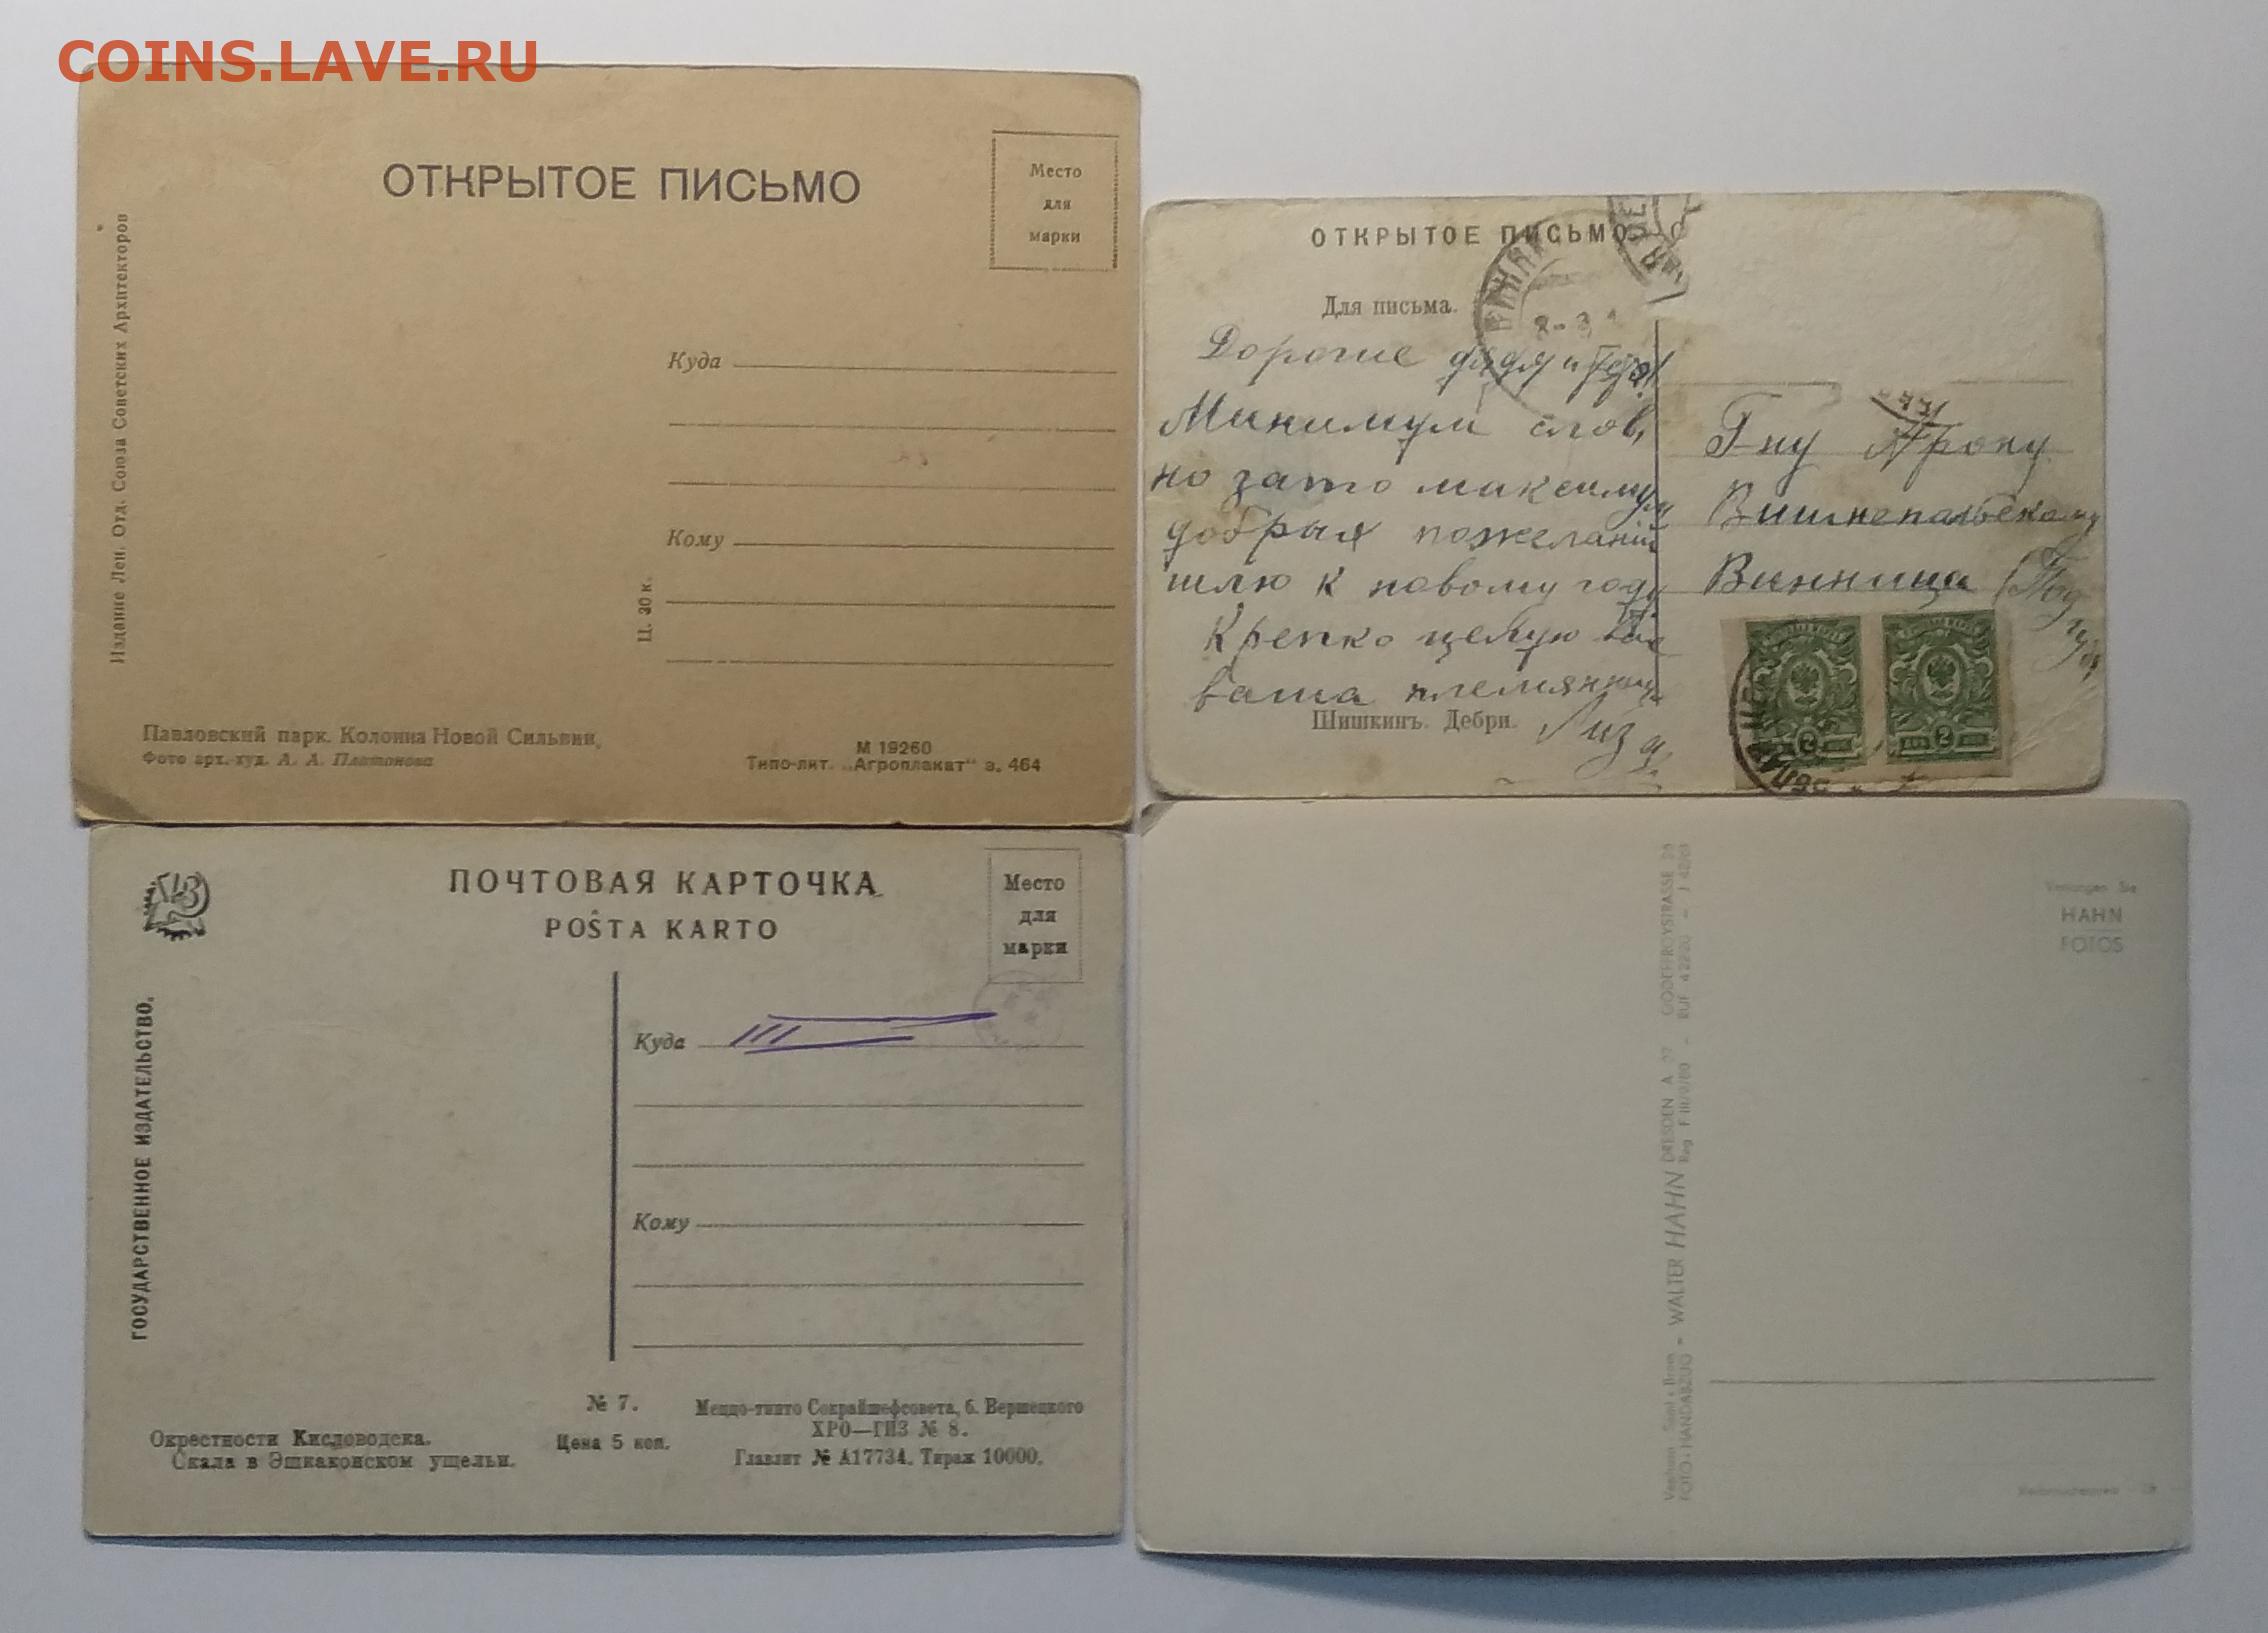 COINS.LAVE.RU
ОТКРЫТОЕ ПИСЬМО
Место
для
марки
Издание Лен. Отд. Союза Советских Архитекторов
Куда
Кому
Ц. 30 к.
Павловский парк. Колонна Новой Сильвии.
Фото арх.-худ. А. А. Платонова
М 19260
Типо-лит. „Агроплакат" з. 464
ОТКРЫТОЕ ПИСЬМО
Для письма.
Дорогие дядя и тётя!
Минимум слов,
но зато максимум
добрых пожеланій
шлю к новому году
Крепко целую Вас
ваша племянница
Лиза
Шишкинъ. Дебри.
Г-ну Арону
Винница
2 2
ПОЧТОВАЯ КАРТОЧКА
POŜTA KARTO
Место
для
марки
ГОСУДАРСТВЕННОЕ ИЗДАТЕЛЬСТВО.
Куда
Кому
№ 7.
Цена 5 коп.
Окрестности Кисловодска.
Скала в Эшкаконском ущельи.
Меццо-тинто Сокрайшефсовета, б. Вершецкого
ХРО—ГИЗ № 8.
Главлит № А17734. Тираж 10000.
Verlangen Sie
HAHN
FOTOS
WALTER HAHN DRESDEN A 27 GODEFFROYSTRASSE
FOTO-HANDABZUG